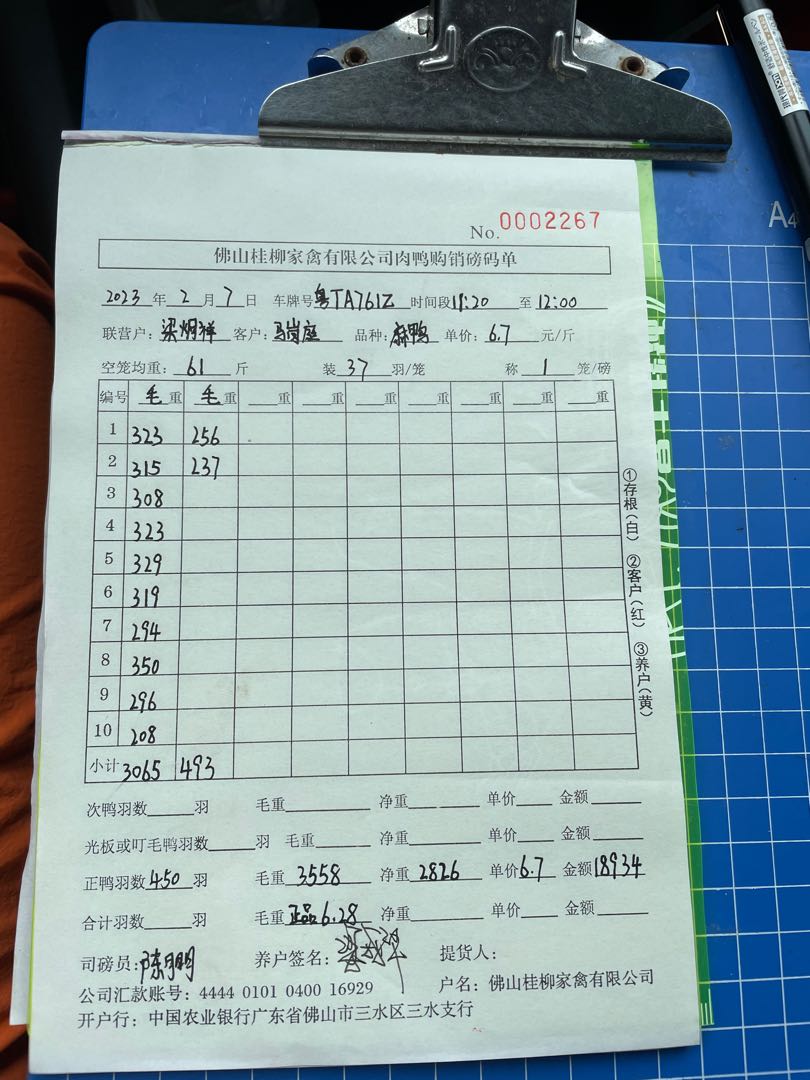 No. 0002267
佛山桂柳家禽有限公司肉鸭购销磅码单
2023 年 2 月 7 日 车牌号粤TA761Z 时间段11:20 至 12:00
联营户:梁炳祥 客户:马岗座 品种:麻鸭 单价:6.7 元/斤
空笼均重:61 斤 装 37 羽/笼 称 1 笼/磅
编号 毛重 毛重 重 重 重 重 重 重
1 323 256
2 315 237
3 308
4 323
5 329
6 319
7 294
8 350
9 296
10 208
小计 3065 493
①存根(白) ②客户(红) ③养户(黄)
次鸭羽数 羽 毛重 净重 单价 金额
光板或叮毛鸭羽数 羽 毛重 净重 单价 金额
正鸭羽数 450 羽 毛重 3558 净重 2826 单价6.7 金额18934
合计羽数 羽 毛重 正品6.28 净重 单价 金额
司磅员:陈鹏 养户签名: 提货人:
公司汇款账号:4444 0101 0400 16929 户名:佛山桂柳家禽有限公司
开户行:中国农业银行广东省佛山市三水区三水支行
A4